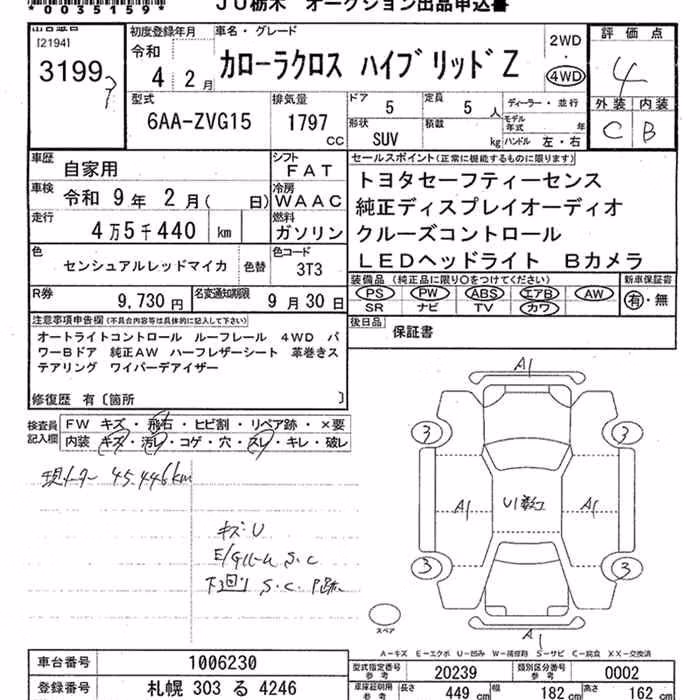 *0035159*
JU栃木 オークション出品申込書
[2194]
3199
初度登録年月
令和
4 2月
車名・グレード
カローラクロス ハイブリッドZ
2WD
・
4WD
評価点
4
外装 内装
C B
型式
6AA-ZVG15
排気量
1797
cc
ドア 5
定員 5 人
ディーラー・並行
形状 SUV
積載 kg
モデル年式 年
ハンドル 左・右
車歴
自家用
シフト
FAT
車検
令和 9年 2月( 日)
冷房
WAAC
走行
4万5千440 km
燃料
ガソリン
色
センシュアルレッドマイカ
色替
色コード
3T3
R券
9,730円
名変通知期限
9月30日
セールスポイント(正常に機能するものに限ります)
トヨタセーフティーセンス
純正ディスプレイオーディオ
クルーズコントロール
LEDヘッドライト Bカメラ
装備品(純正品に限り○をつけてください)
PS PW ABS エアB AW
SR ナビ TV カワ
新車保証書
有・無
後日品
保証書
注意事項申告欄(不具合内容等は具体的に記入して下さい)
オートライトコントロール ルーフレール 4WD パ
ワーBドア 純正AW ハーフレザーシート 革巻きス
テアリング ワイパーデアイザー
修復歴 有〔箇所 〕
検査員
記入欄
FW キズ・飛石・ヒビ割・リペア跡・×要
内装 キズ・汚レ・コゲ・穴・スレ・キレ・破レ
現メーター 45,446km
キズU
S.C
下回り S.C P跡
A1
3 3
A1 U1 A1
3 3
スペア
A1
A-キズ E-エクボ U-凹み W-補修跡 S-サビ C-腐食 XX-交換済
車台番号
1006230
登録番号
札幌 303 る 4246
型式指定番号
参考
20239
類別区分番号
参考
0002
車庫証明用
参考
長さ 449 cm
幅 182 cm
高さ 162 cm